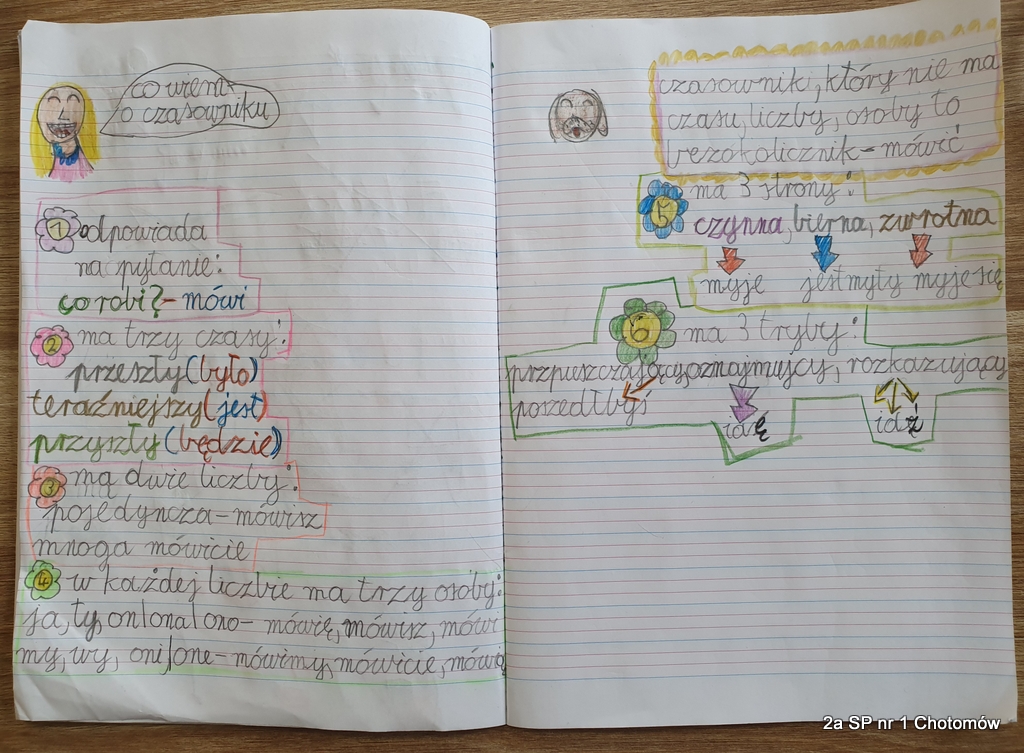 co wiem
o czasowniku
1 odpowiada
na pytanie:
co robi? - mówi
2 ma trzy czasy:
przeszły (było)
teraźniejszy (jest)
przyszły (będzie)
3 ma dwie liczby:
pojedyncza - mówisz
mnoga mówicie
4 w każdej liczbie ma trzy osoby:
ja, ty, on|ona|ono - mówię, mówisz, mówi
my, wy, oni|one - mówimy, mówicie, mówią
czasownik, który nie ma
czasu, liczby, osoby to
bezokolicznik - mówić
5 ma 3 strony:
czynna, bierna, zwrotna
myje jest myty myje się
6 ma 3 tryby:
przpuszczający, oznajmujcy, rozkazujący
poszedłbyś
idę idź
2a SP nr 1 Chotomów